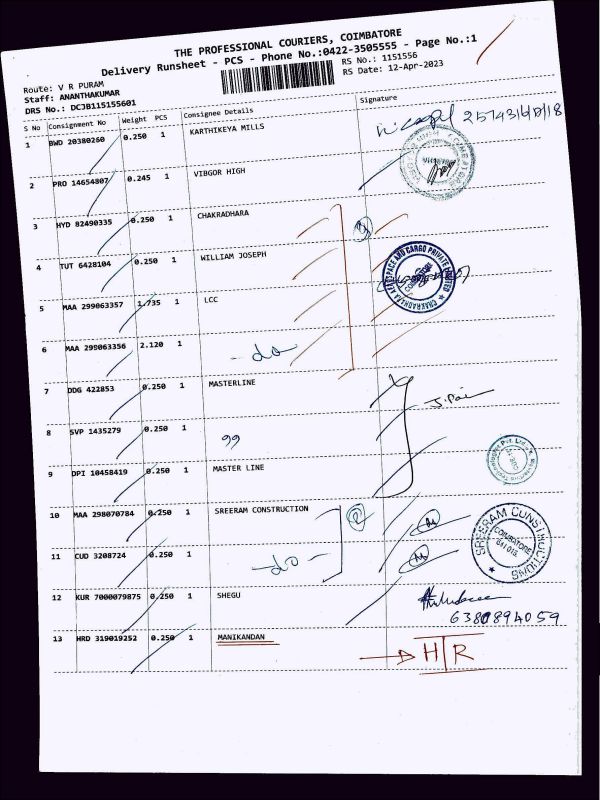 THE PROFESSIONAL COURIERS, COIMBATORE
Delivery Runsheet - PCS - Phone No.:0422-3505555 - Page No.:1
Route: V R PURAM
Staff: ANANTHAKUMAR
DRS No.: DCJB115155601
RS No.: 1151556
RS Date: 12-Apr-2023
S No Consignment No Weight PCS Consignee Details Signature
1 BWD 20380260 0.250 1 KARTHIKEYA MILLS
2 PRO 14654807 0.245 1 VIBGOR HIGH
3 HYD 82490335 0.250 1 CHAKRADHARA
4 TUT 6428104 0.250 1 WILLIAM JOSEPH
CHAKRADHARA AEROSPACE AND CARGO PRIVATE LIMITED
5 MAA 299063357 1.735 1 LCC
6 MAA 299063356 2.120 1 -do-
7 DDG 422853 0.250 1 MASTERLINE
8 SVP 1435279 0.250 1 99
9 DPI 10458419 0.250 1 MASTER LINE
10 MAA 298070784 0.250 1 SREERAM CONSTRUCTION
SREERAM CONSTRUCTIONS
COIMBATORE
641 018
11 CUD 3208724 0.250 1 -do-
12 KUR 7000079875 0.250 1 SHEGU
6380894059
13 HRD 319019252 0.250 1 MANIKANDAN
H R